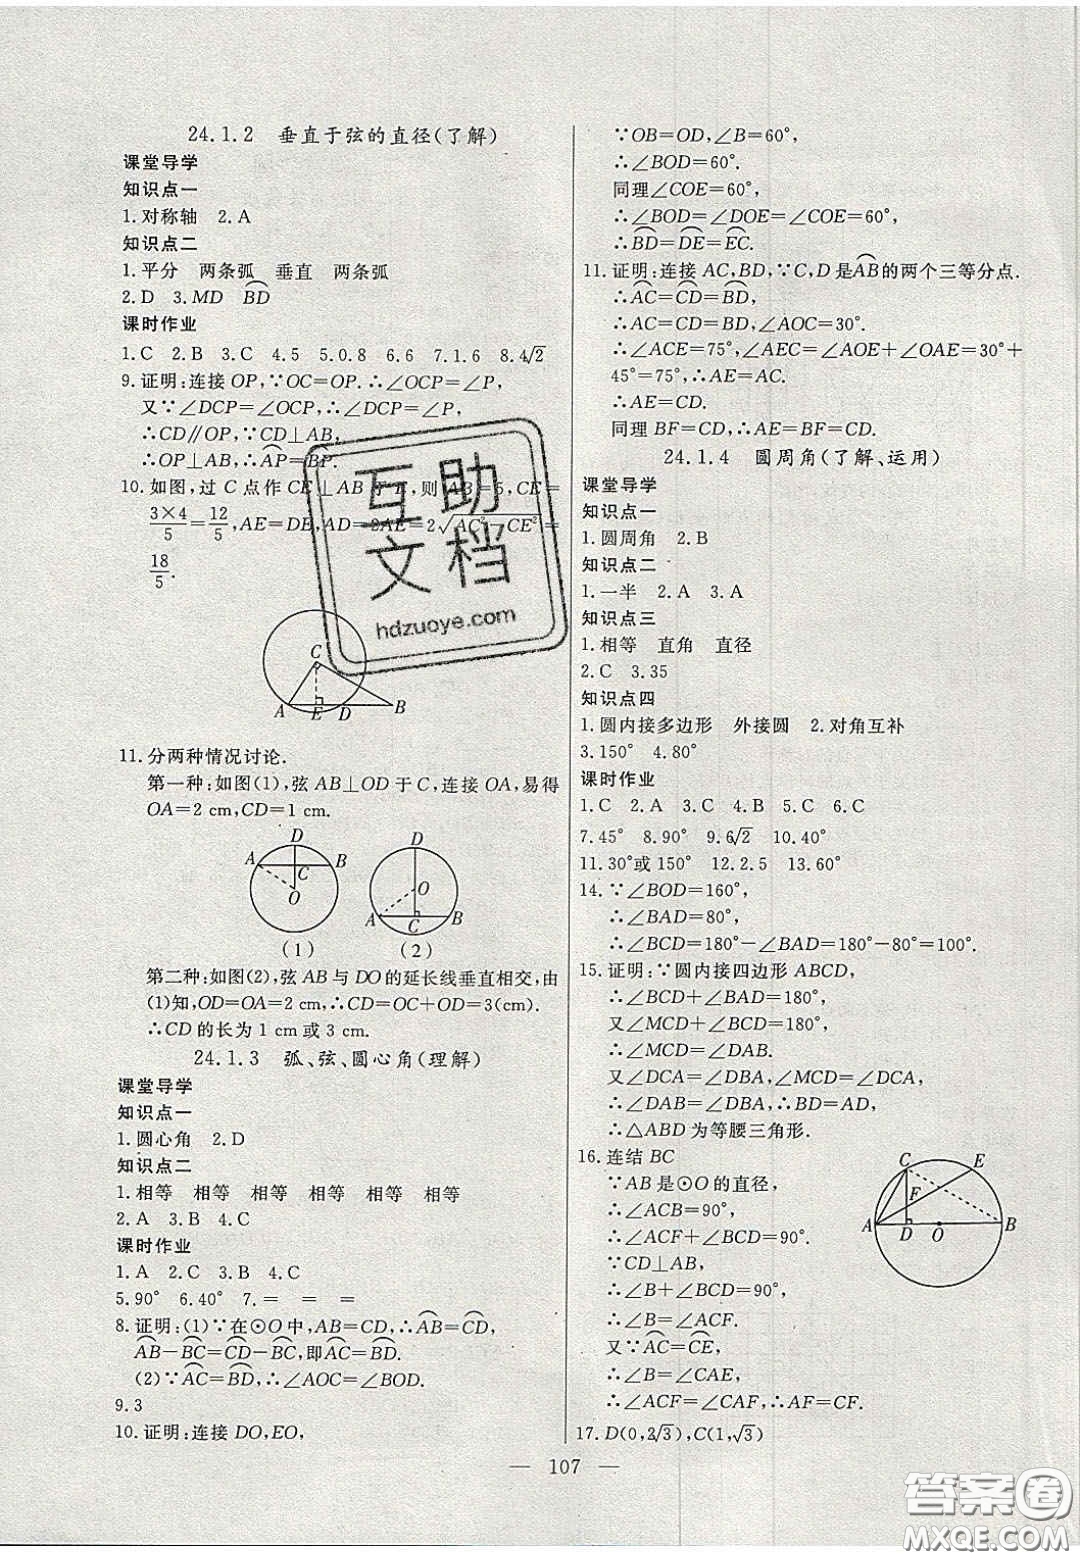 24.1.2 垂直于弦的直径(了解)
课堂导学
知识点一
1.对称轴 2.A
知识点二
1.平分 两条弧 垂直 两条弧
2.D 3.MD BD⌒
课时作业
1.C 2.B 3.C 4.5 5.0.8 6.6 7.1.6 8.4√2
9.证明:连接OP,∵OC=OP.∴∠OCP=∠P,
又∵∠DCP=∠OCP,∴∠DCP=∠P,
∴CD∥OP,∵CD⊥AB,
∴OP⊥AB,∴AP⌒=BP⌒.
10.如图,过C点作CE⊥AB于E,则AB=5,CE=
3×4/5=12/5,AE=DE,AD=2AE=2√(AC²-CE²)=
18/5.
C
A E D B
11.分两种情况讨论.
第一种:如图(1),弦AB⊥OD于C,连接OA,易得
OA=2 cm,CD=1 cm.
D A B C O
(1)
D O A C B
(2)
第二种:如图(2),弦AB与DO的延长线垂直相交,由
(1)知,OD=OA=2 cm,∴CD=OC+OD=3(cm).
∴CD的长为1 cm或3 cm.
24.1.3 弧、弦、圆心角(理解)
课堂导学
知识点一
1.圆心角 2.D
知识点二
1.相等 相等 相等 相等 相等 相等
2.A 3.B 4.C
课时作业
1.A 2.C 3.B 4.C
5.90° 6.40° 7.= = = =
8.证明:(1)∵在⊙O中,AB=CD,∴AB⌒=CD⌒,
AB⌒-BC⌒=CD⌒-BC⌒,即AC⌒=BD⌒.
(2)∵AC⌒=BD⌒,∴∠AOC=∠BOD.
9.3
10.证明:连接DO,EO,
∵OB=OD,∠B=60°,
∴∠BOD=60°.
同理∠COE=60°,
∴∠BOD=∠DOE=∠COE=60°,
∴BD⌒=DE⌒=EC⌒.
11.证明:连接AC,BD,∵C,D是AB⌒的两个三等分点.
∴AC⌒=CD⌒=BD⌒,
∴AC=CD=BD,∠AOC=30°.
∴∠ACE=75°,∠AEC=∠AOE+∠OAE=30°+
45°=75°,∴AE=AC.
∴AE=CD.
同理BF=CD,∴AE=BF=CD.
24.1.4 圆周角(了解、运用)
课堂导学
知识点一
1.圆周角 2.B
知识点二
1.一半 2.A 3.A
知识点三
1.相等 直角 直径
2.C 3.35
知识点四
1.圆内接多边形 外接圆 2.对角互补
3.150° 4.80°
课时作业
1.C 2.A 3.C 4.B 5.C 6.C
7.45° 8.90° 9.6√2 10.40°
11.30°或150° 12.2.5 13.60°
14.∵∠BOD=160°,
∴∠BAD=80°,
∴∠BCD=180°-∠BAD=180°-80°=100°.
15.证明:∵圆内接四边形ABCD,
∴∠BCD+∠BAD=180°,
又∠MCD+∠BCD=180°,
∴∠MCD=∠DAB.
又∠DCA=∠DBA,∠MCD=∠DCA,
∴∠DAB=∠DBA,∴BD=AD,
∴△ABD为等腰三角形.
16.连结BC
∵AB是⊙O的直径,
∴∠ACB=90°,
∴∠ACF+∠BCD=90°.
∵CD⊥AB,
∴∠B+∠BCD=90°,
∴∠B=∠ACF.
又∵AC⌒=CE⌒,
∴∠B=∠CAE,
∴∠ACF=∠CAF,∴AF=CF.
C E F A D O B
17.D(0,2√3),C(1,√3)
— 107 —
互助
文档
hdzuoye.com
答案圈
MXQE.COM